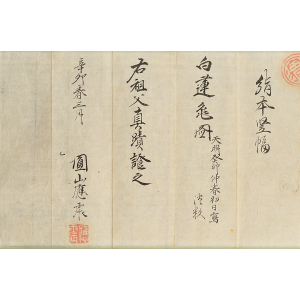 絹本竪幅
白蓮亀図
天明癸卯仲春初日写
右祖父真蹟證之
辛卯春三月
圓山應